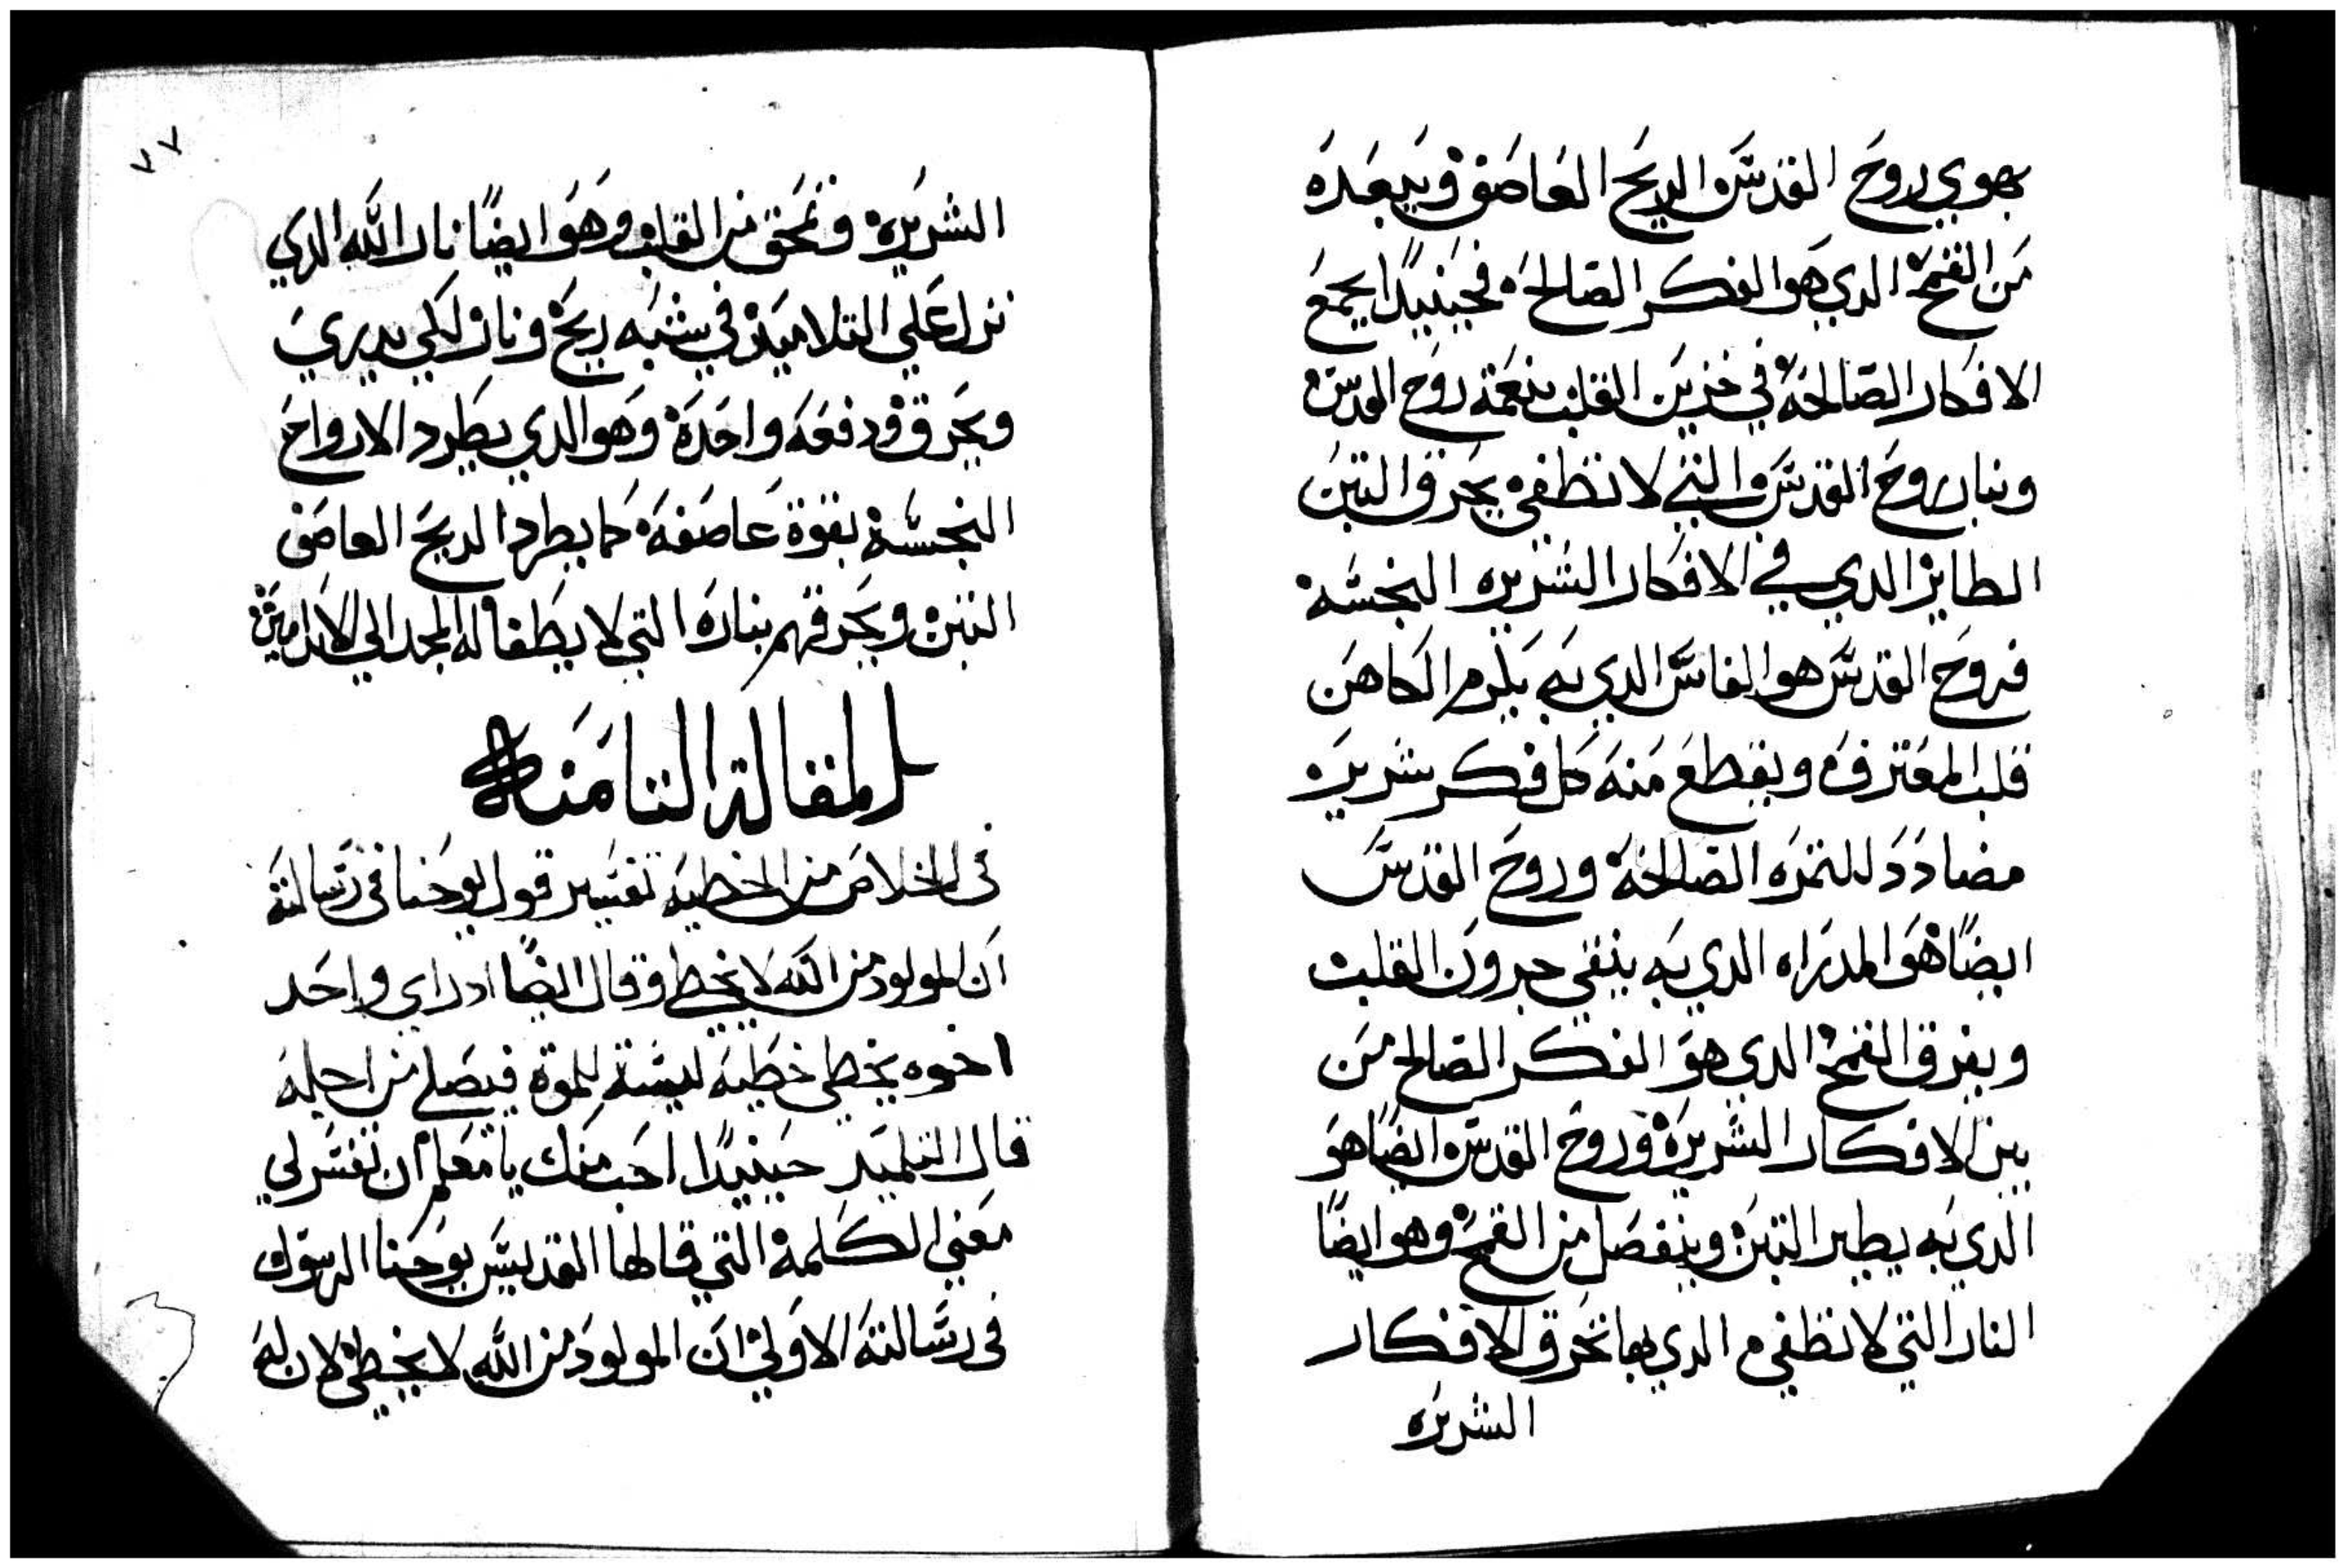 بهوي روح القدس الريح العاصف ويبعده
من القمح الدي هو الفكر الصالحه فحينيدا يجمع
الافكار الصالحه في خزين القلب بنعمة روح القدس
وبنار روح القدس التي لا تطفي يحرق التبن
الطاير الدي في الافكار الشريره النجسة
فروح القدس هو الفاس الدي به يلزم الكاهن
قلب المعترف ويقطع منه كل فكر شريره
مضادد للتمره الصالحة وروح القدس
ايضا هو المدراه الدي به ينقي جرون القلب
ويفرق القمح الدي هو الفكر الصالح من
بين الافكار الشريرة وروح القدس ايضا هو
الدي به يطير التبن وينفصل من القمح وهو ايضا
النار التي لا تطفي الدي بها تحرق الافكار
الشريره
٧٧
الشريرة وتمحق من القلب وهو ايضا نار الله الدي
نزل علي التلاميد في شبه ريح ونار لكي يدري
ويحرق دفعه واحدة وهو الدي يطرد الارواح
النجسة بقوة عاصفة كما يطرد الريح العاصف
التبن ويحرقهم بناره التي لا يطفا له المجد الي الابد امين
المقالة التامنه
في الخلاص من الخطيه تفسير قول يوحنا في رسالته
ان المولود من الله لا يخطي وقال ايضا ادا راي واحد
اخوه يخطي خطيه ليسة للموة فيصلي من اجله
قال التلميد حينيدا احب منك يا معلم ان تفسر لي
معني الكلمة التي قالها القديس يوحنا الرسول
في رسالته الاولي ان المولود من الله لا يخطي لان له